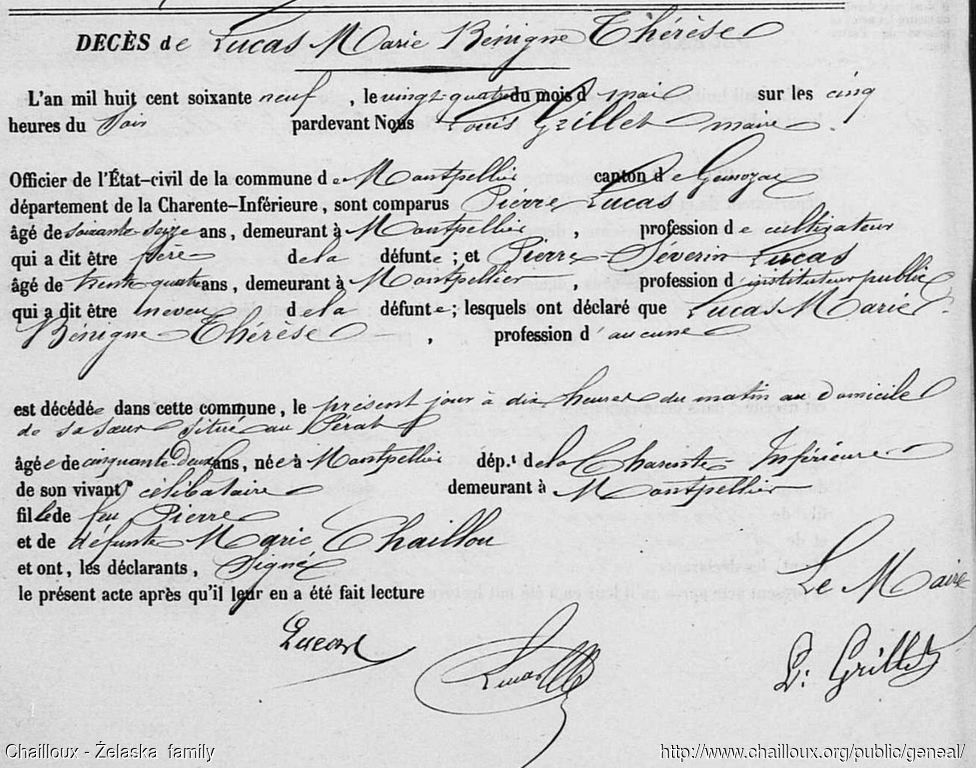 DECÈS de Lucas Marie Bénigne Thérèse
L'an mil huit cent soixante neuf, le vingt quatre du mois d mai sur les cinq
heures du soir pardevant Nous Louis Grillet maire
Officier de l'État-civil de la commune de Montpellier canton de Gemozac
département de la Charente-Inférieure, sont comparus Pierre Lucas
âgé de soixante seize ans, demeurant à Montpellier, profession de cultivateur
qui a dit être père de la défunte; et Pierre Séverin Lucas
âgé de trente quatre ans, demeurant à Montpellier, profession d'instituteur public
qui a dit être neveu de la défunte; lesquels ont déclaré que Lucas Marie
Bénigne Thérèse, profession d'aucune
est décédée dans cette commune, le présent jour à dix heures du matin au domicile
de sa sœur situé au Pérat
âgée de cinquante deux ans, née à Montpellier dép.t de la Charente Inférieure
de son vivant célibataire demeurant à Montpellier
fille de feu Pierre
et de défunte Marie Chaillou
et ont, les déclarants, signé
le présent acte après qu'il leur en a été fait lecture
Le Maire
Lucas
Lucas
L: Grillet
Chailloux - Želaska family
http://www.chailloux.org/public/geneal/